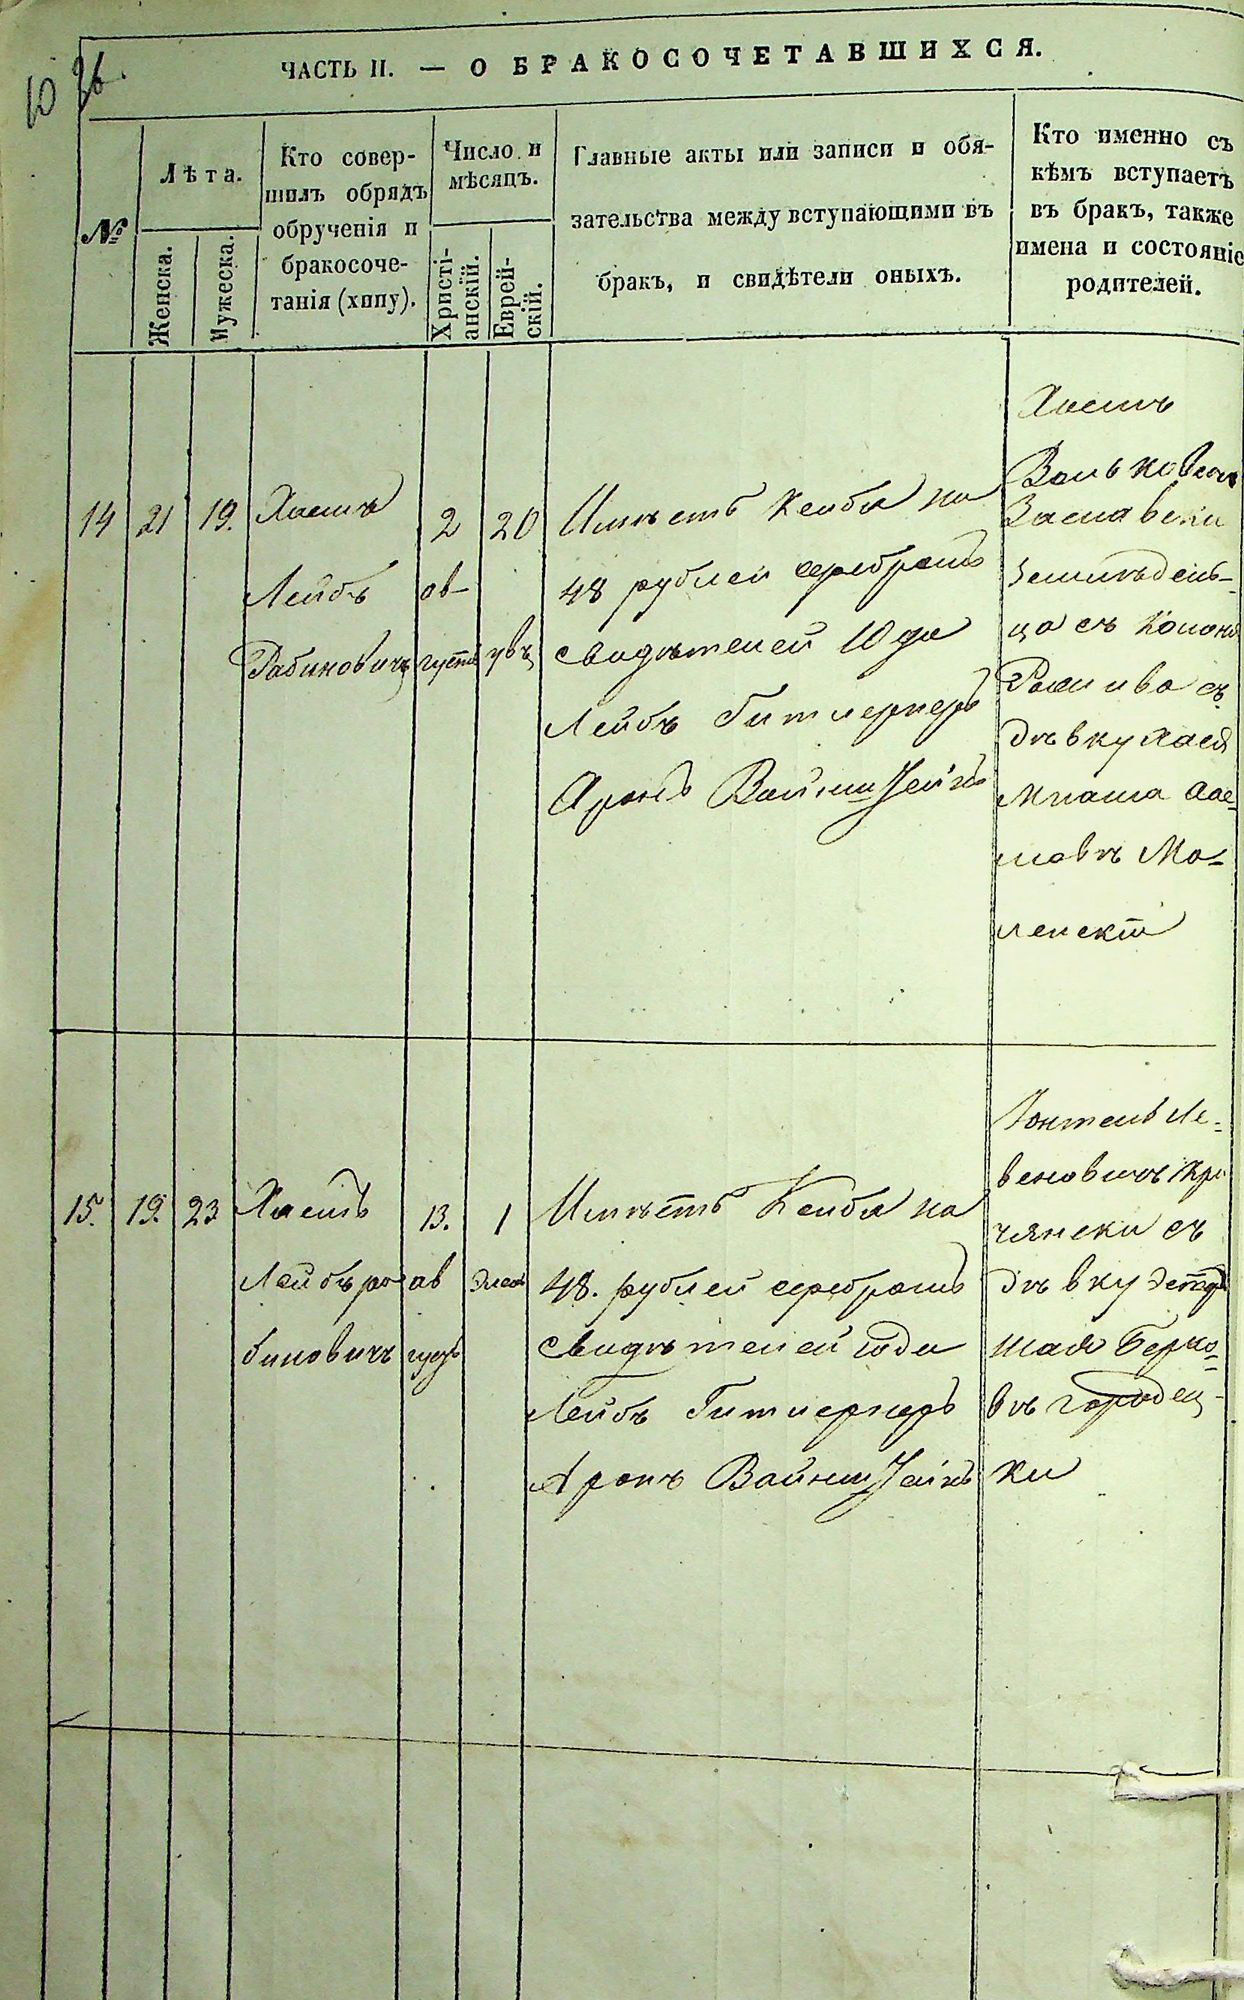 ЧАСТЬ II. — О БРАКОСОЧЕТАВШИХСЯ.
№
Лѣта.
Женска.
Мужеска.
Кто совер-
шилъ обрядъ
обрученія и
бракосоче-
танія (хипу).
Число и
мѣсяцъ.
Христі-
анскій.
Еврей-
скій.
Главные акты или записи и обя-
зательства между вступающими въ
бракъ, и свидѣтели оныхъ.
Кто именно съ
кѣмъ вступаетъ
въ бракъ, также
имена и состояніе
родителей.
14
21
19.
Хаимъ
Лейбъ
Рабиновичъ
2
ав-
густа
20
Имѣетъ Кенба на
48 рублей серебромъ
свидѣтелей
Лейбъ Гитлернеръ
Аронъ
Хаимъ
Вольковичъ
Заславски
земледель-
ца съ Колоні
съ
дѣвку Хася
ловнъ Мо-
15.
19.
23
Хаимъ
Лейбъ ра
биновичъ
13.
ав
густъ
1
Элель
Имѣетъ Кенба на
48. рублей серебромъ
свидѣтелей
Лейбъ Гитлернеръ
Аронъ
Ле-
веновичъ
съ
дѣвку
Берко-
внъ городец-
ки